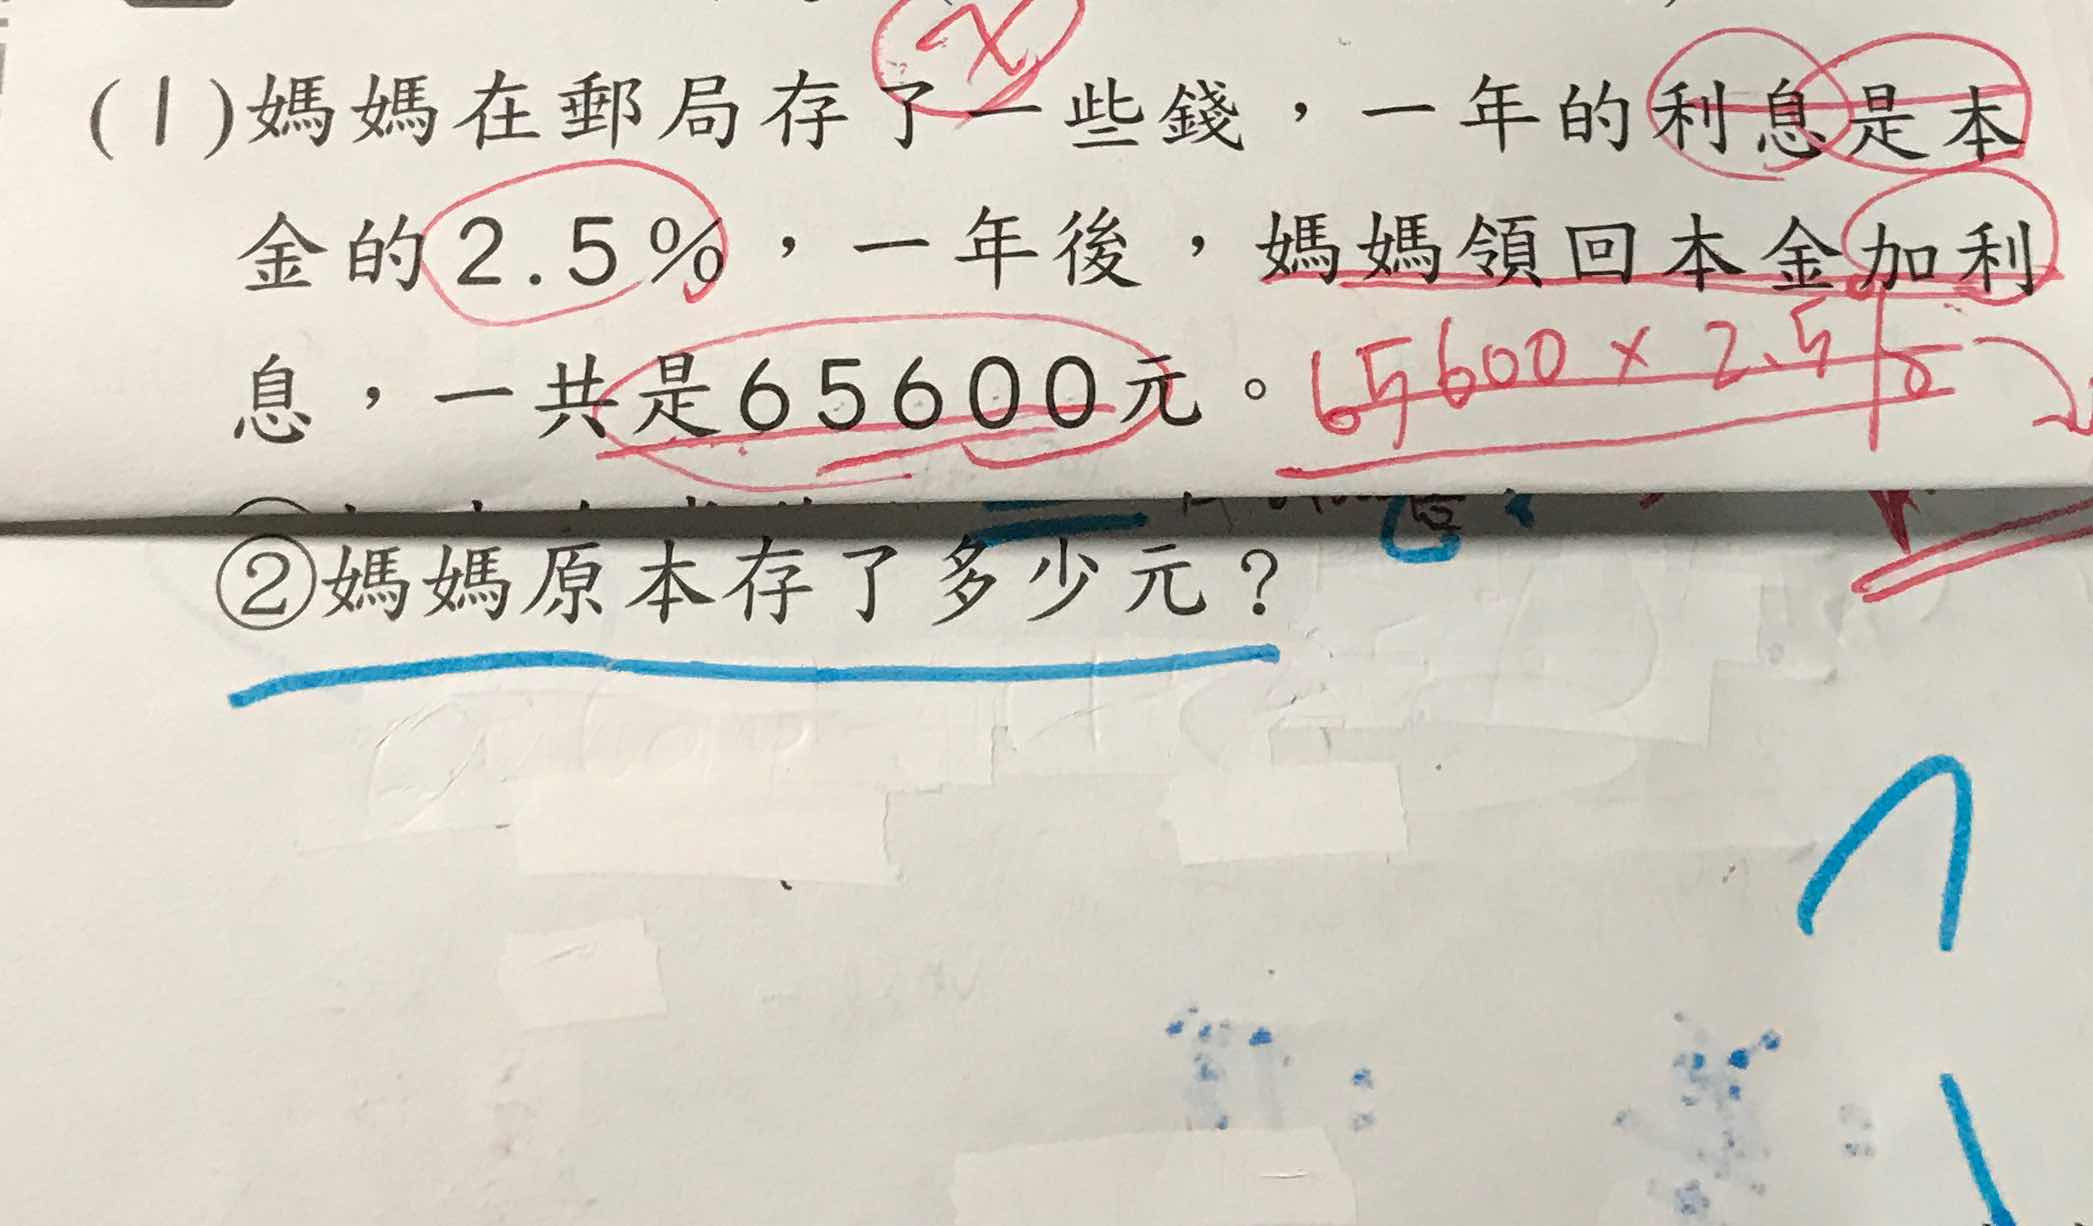 x
(1)媽媽在郵局存了一些錢,一年的利息是本
金的2.5%,一年後,媽媽領回本金加利
息,一共是65600元。
65600 × 2.5
②媽媽原本存了多少元?